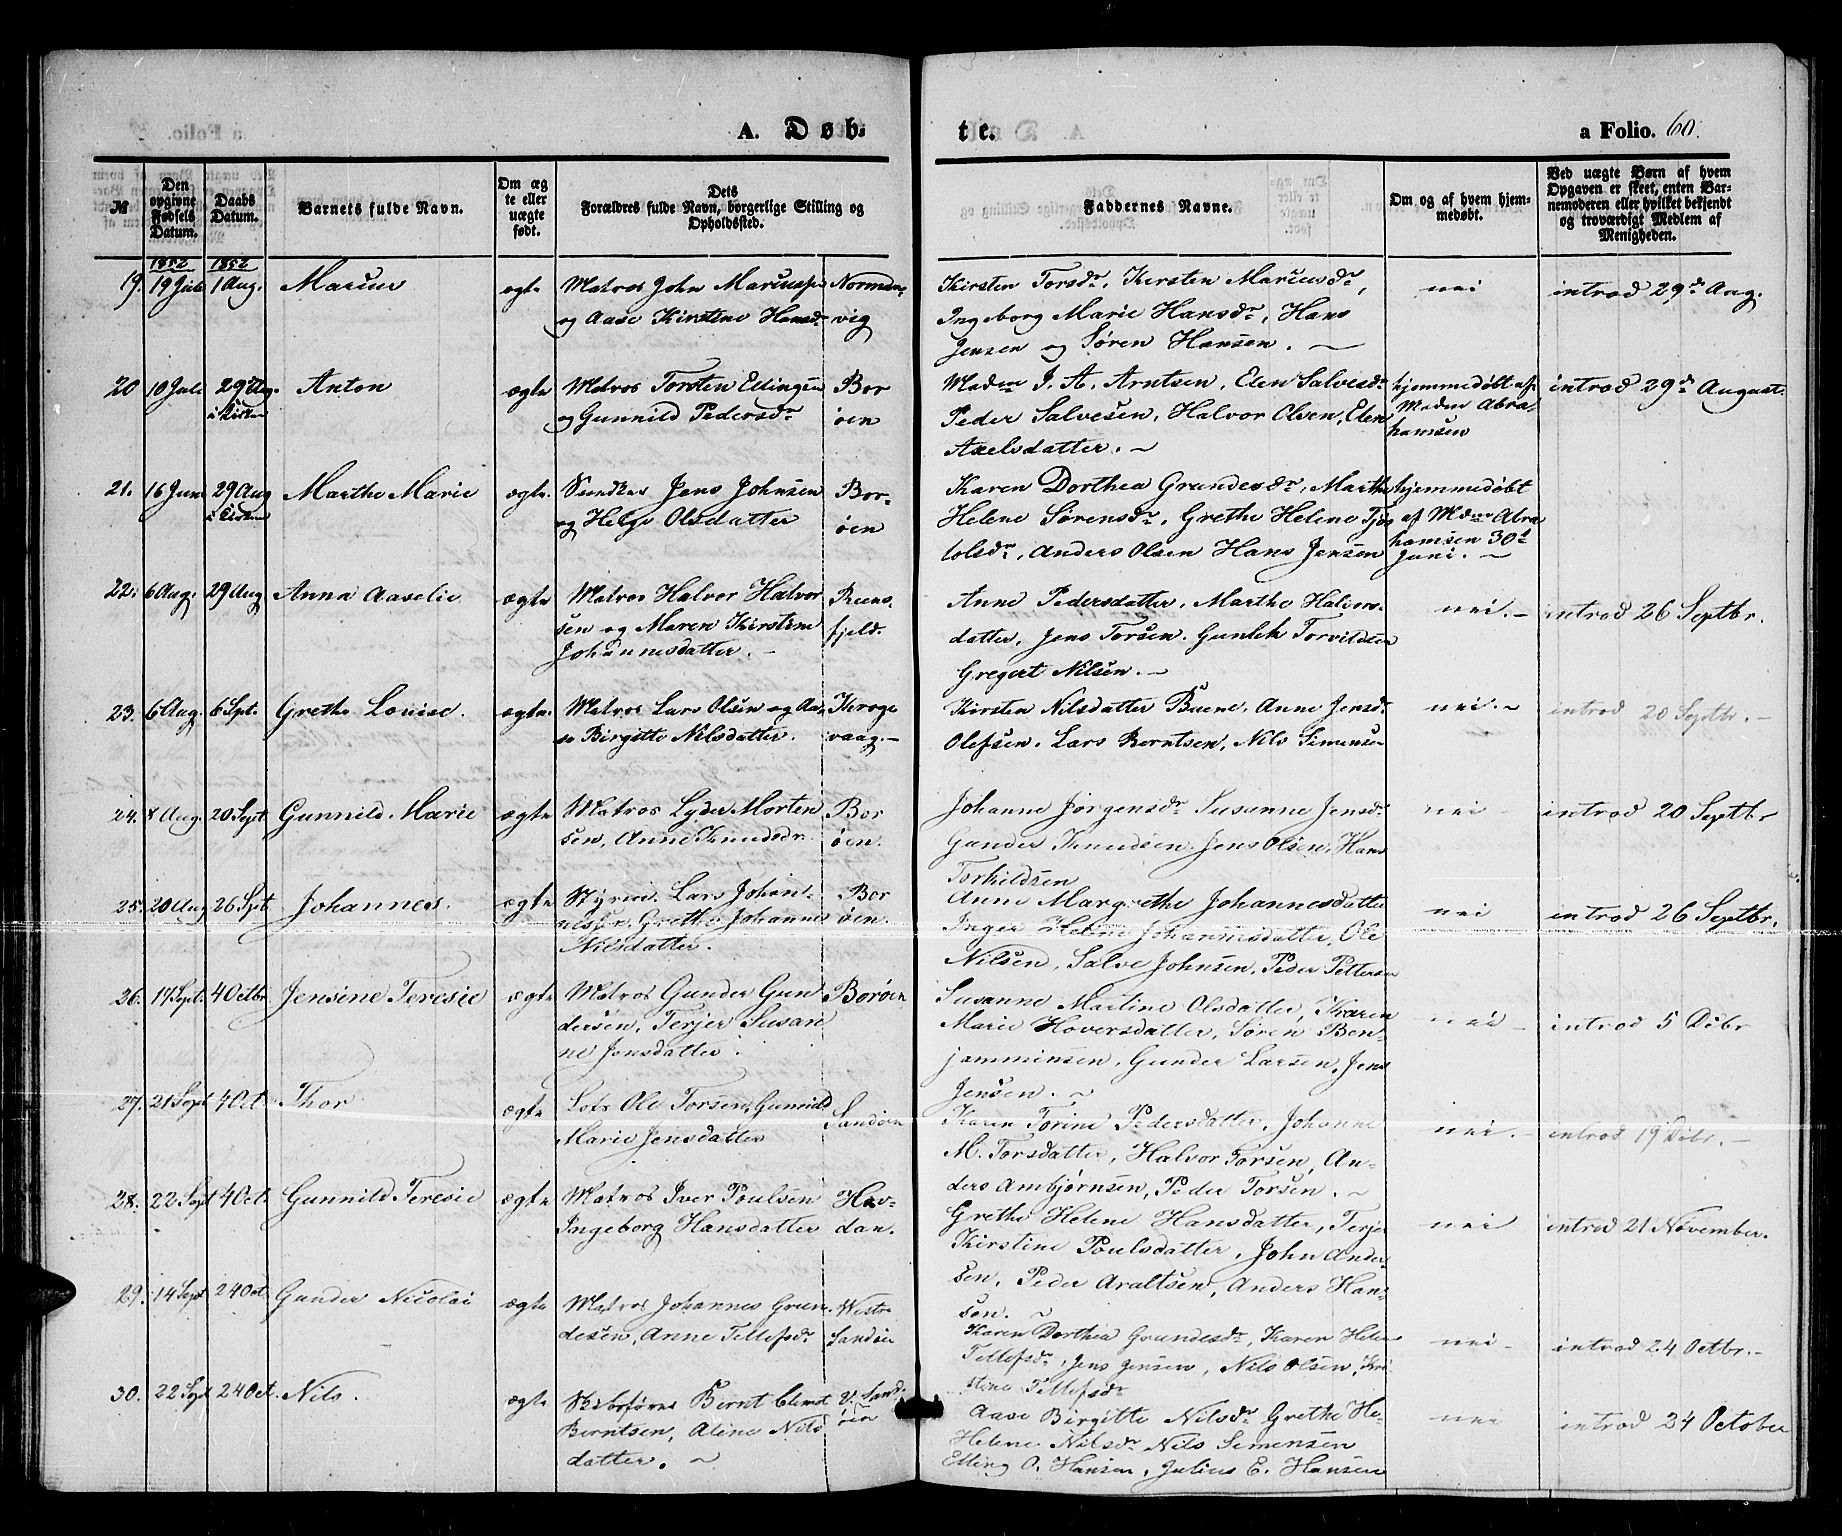 A. Døb-
te.
a Folio. 60.
№
Den opgivne Fødsels Datum.
Daabs Datum.
Barnets fulde Navn.
Om ægte eller uægte født.
Dets Forældres fulde Navn, borgerlige Stilling og Opholdssted.
Faddernes Navne.
Om og af hvem hjemmedøbt.
Ved uægte Børn af hvem Opgaven er skeet, enten Barnemoderen eller hvilket bekjendt og troværdigt Medlem af Menigheden.
1852 1852
19. 19 Juli 1 Aug. Marius ægte Matros John Mariussen Norman-
og Aase Kirstine Hansdr vig
Kirsten Torsdr, Kirsten Mariusdr,
Ingeborg Marie Hansdr, Hans
Jensen og Søren Hansen.
nei introd 29de Aug.
20 10 Juli 29de Aug. i Kirken Anton ægte Matros Torsten Ellingsen Bor
og Gunnild Pedersdr øen
Madm J. A. Arntsen, Elen Salvesdr
Peder Salvesen, Halvor Olsen, Elen
Axelsdatter.
hjemmedøbt af
Madm Abra-
hamsen
introd 29de August.
21. 16 Juni 29 Aug i Kirken Marthe Marie ægte. Jens Johnsen Bor-
og Helge Olsdatter øen
Karen Dorthea Grundesdr, Marthe
Helene Sørensdr, Grethe Helene Tjøs
tolsdr, Anders Olsen Hans Jensen
hjemmedøbt
af Madm Abra
hamsen 30te
Juni.
22. 6 Aug. 29 Aug Anna Aaselie ægte Matros Halvor Halvor
sen og Maren Kirstine fjeld.
Johannesdatter.
Anne Pedersdatter, Marthe Halvors-
datter, Jens Torsen. Gunlek Torvildsen
Gregert Nilsen.
nei. introd 26 Septbr.
23. 6 Aug. 6 Spt. Grethe Louise. ægte. Matros Lars Olsen og Aa- Kroge
se Birgitte Nilsdatter. vaag.
Kirsten Nilsdatter Buene, Anne Jensdr
Olefsen. Lars Berntsen, Nils Simensen
nei. introd 20 Septbr.
24. 8 Aug. 20 Sept Gunnild Marie ægte Matros Lyder Morten Bor
sen, Anne Knudsdr. øen.
Johanne Jørgensdr Susanne Jensdr
Gunder Knudsen Jens Olsen, Hans
Torkildsen
nei introd 20 Septbr
25. 20 Aug 26 Spt Johannes. ægte Styrm. Lars Johan- Bor
nessen, Grethe Johanne øen.
Nilsdatter.
Anne Margrethe Johannesdatter
Inger Helene Johannesdatter, Ole
Nilsen, Salve Johnsen, Peder Pettersen
nei introd 26 Septbr.
26. 17 Sept. 4 Octbr Jensine Teresie ægte Matros Gunder Gun Borøen
dersen, Terjer Susan
ne Jensdatter.
Susanne Martine Olsdatter, Karen
Marie Hoversdatter, Søren Ben-
jamminsen, Gunder Larsen, Jens
Jensen.
nei introd 5 Dcbr
27. 21 Sept 4 Oct Thor ægte Lots Ole Torsen, Gunnild Sandøen
Marie Jensdatter
Karen Torine Pedersdatter, Johanne
M. Torsdatter, Halvor Torsen, An-
ders Ambjørnsen, Peder Torsen.
nei. introd. 19 Dcbr.
28. 22 Sept 4 Oct. Gunnild Teresie ægte Matros Iver Poulsen Hav-
Ingeborg Hansdatter dan.
Grethe Helene Hansdatter, Terjer
Kirstine Poulsdatter, John Ander
sen, Peder Araltsen, Anders Han-
sen.
nei introd 21 November.
29. 14 Sept 24 Oct Gunder Nicolai ægte Matros Johannes Grun- Westre
desen, Anne Tellefsdr Sandøen
Karen Dorthea Grundesdr, Karen Helene
Tellefsdr, Jens Jensen, Nils Olsen, Kri
stine Tellefsdr
nei introd 24 Octbr.
30. 22 Sept 24 Oct. Nils. ægte Skibsfører Bernt Clemet V. Sand-
Berntsen, Aline Nils øen
datter.
Aase Birgitte Nilsdr Grethe He-
Helene Nilsdr Nils Simensen
Elling O. Hansen, Julius E. Hansen
nei introd 24 October